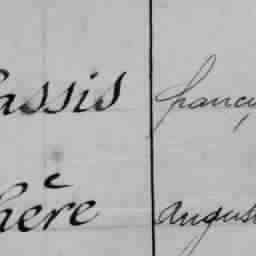 assis franç
hère August